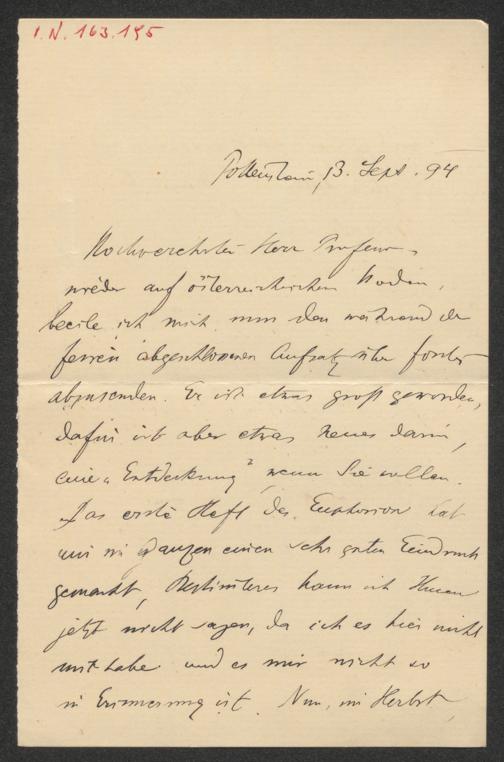 I.N. 163.195
Pottenstein, 13. Sept. 94
Hochverehrter Herr Professor,
wieder auf österreichischem Boden,
beeile ich mich nun den während der
Ferien abgeschlossenen Aufsatz über Forster
abzusenden. Er ist etwas groß geworden,
dafür ist aber etwas Neues darin,
eine „Entdeckung“ wenn Sie wollen.
Das erste Heft des Euphorion hat
mir im Ganzen einen sehr guten Eindruck
gemacht, Bestimmteres kann ich Ihnen
jetzt nicht sagen, da ich es hier nicht
mit habe und es mir nicht so
in Erinnerung ist. Nun, im Herbst,